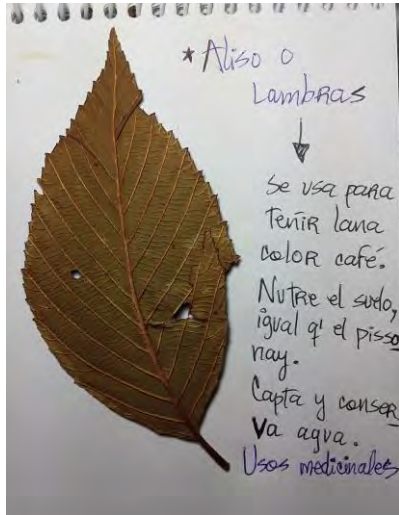 * Aliso o
Lambras
se usa para
teñir lana
color café.
Nutre el suelo,
igual q' el pisso
nay.
Capta y conser
va agua.
Usos medicinales